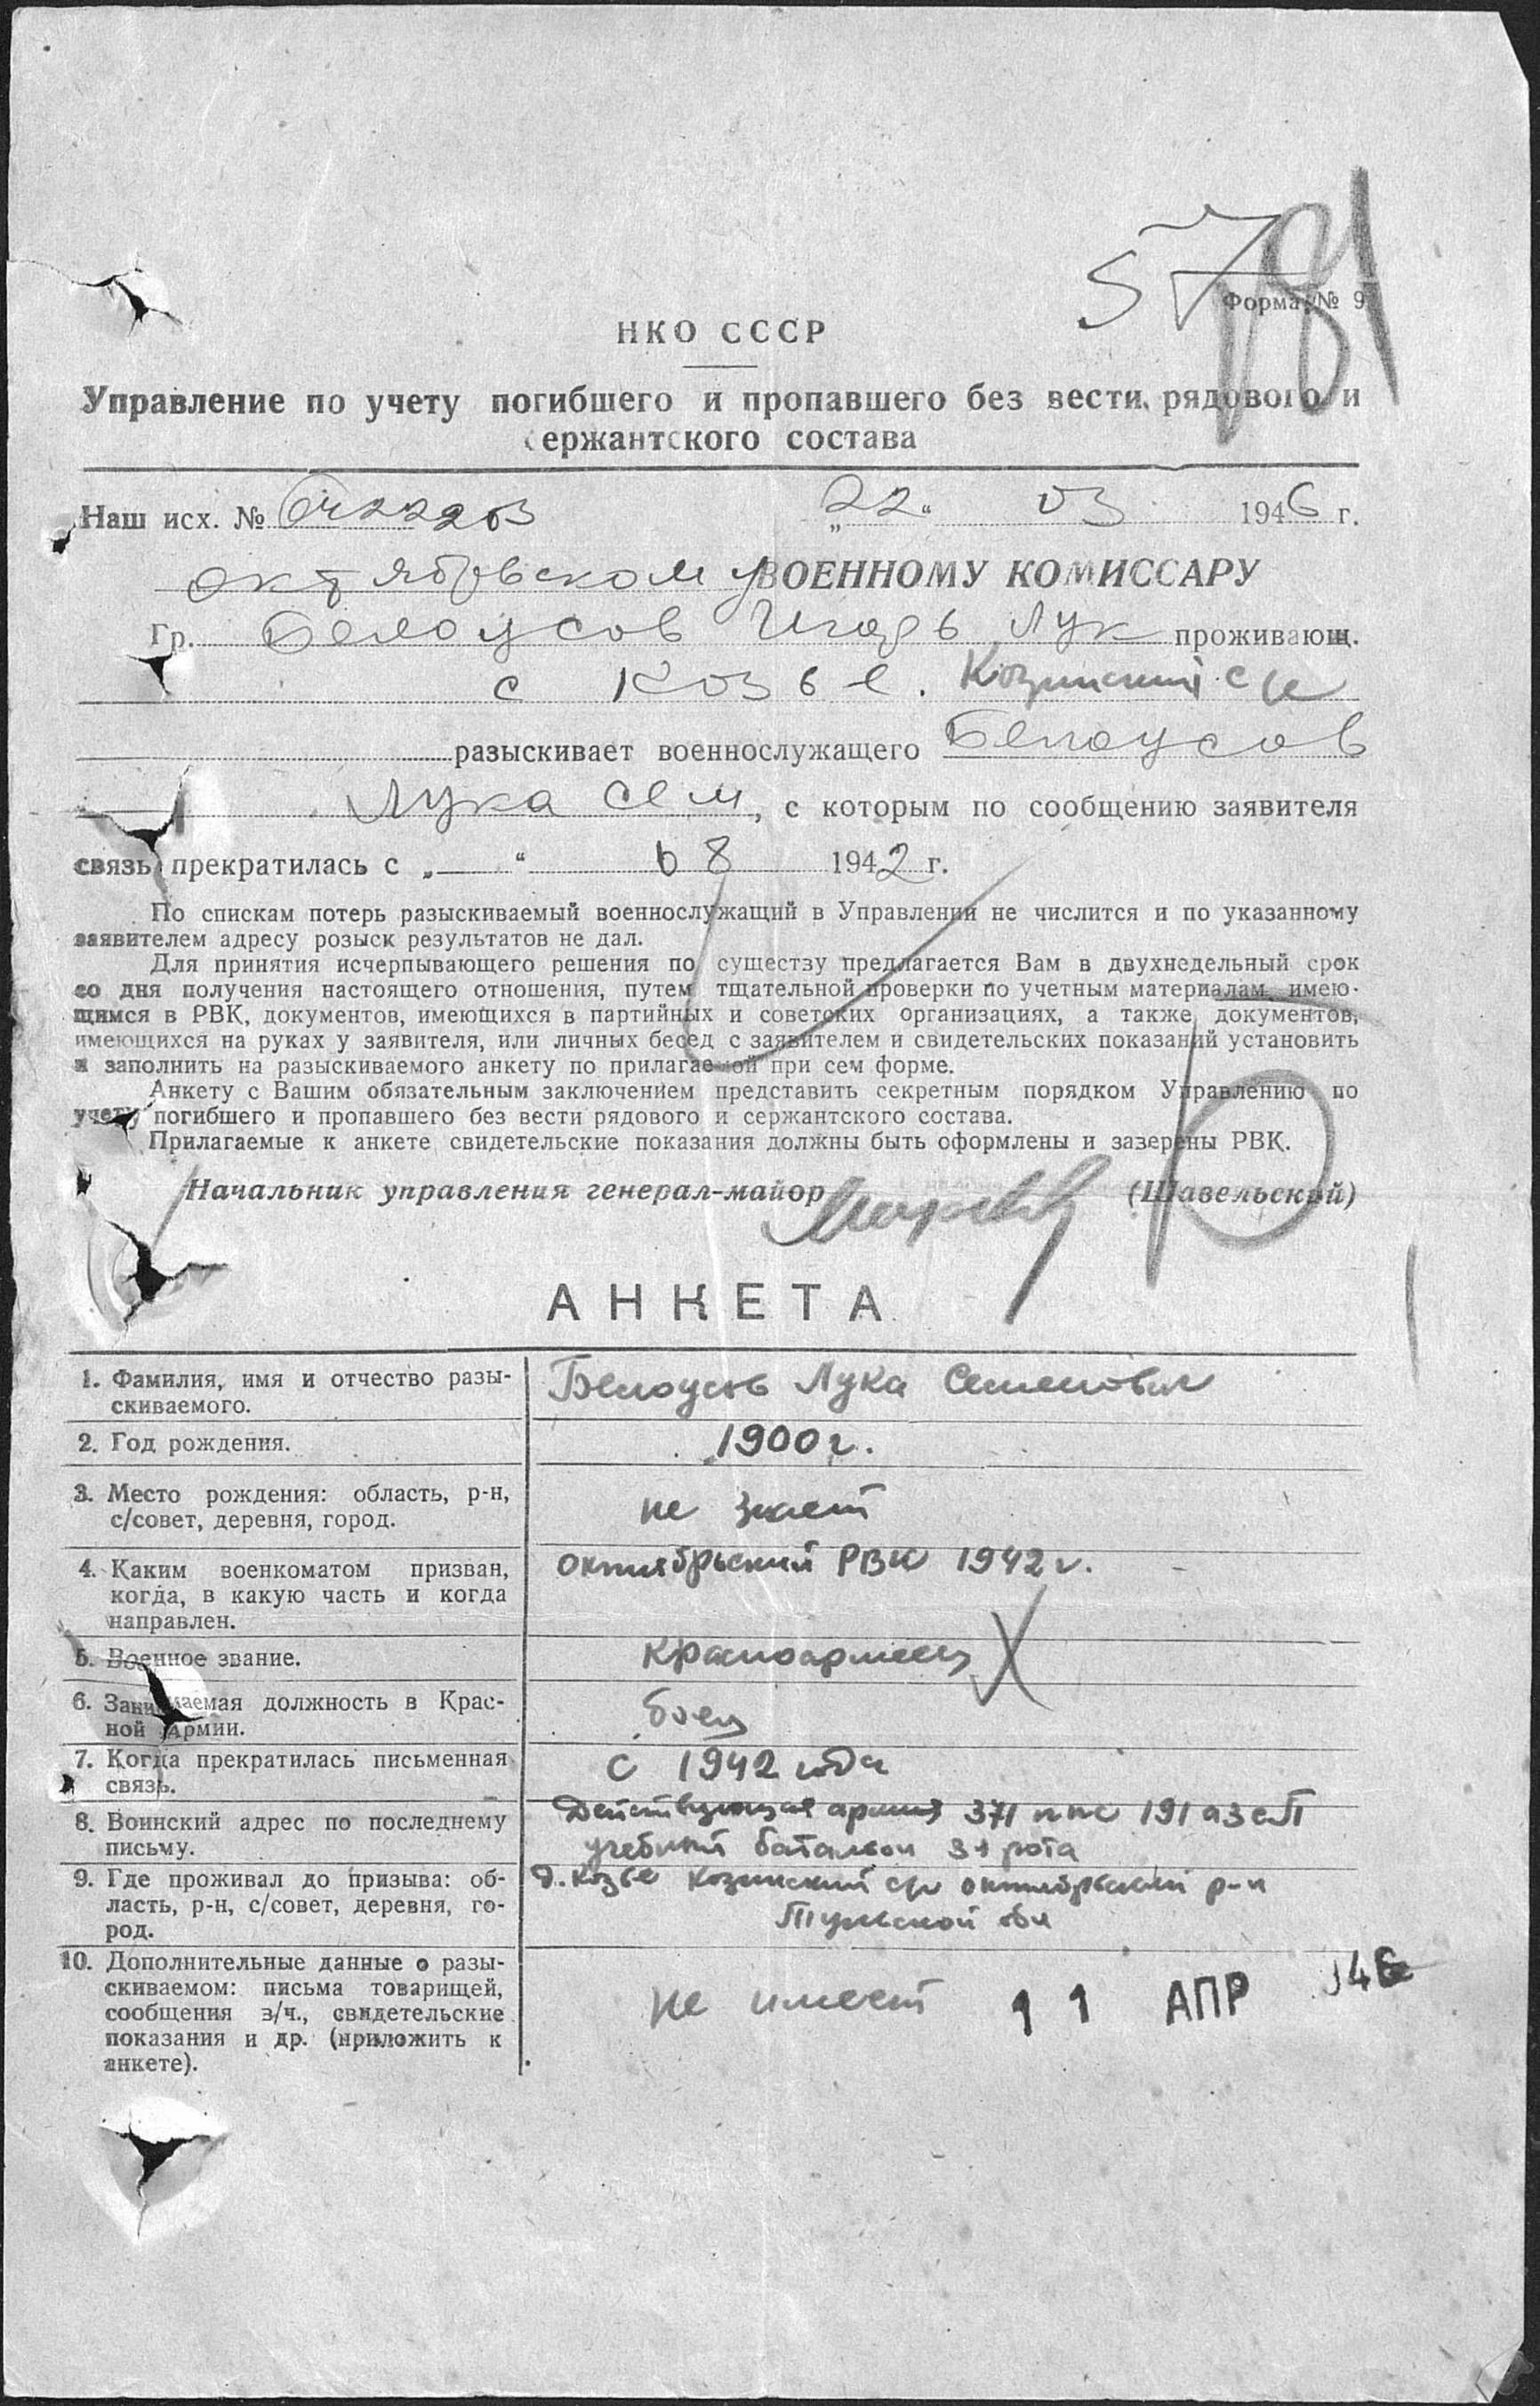 5781
Форма № 9
НКО СССР
Управление по учету погибшего и пропавшего без вести рядового и
сержантского состава
Наш исх. № „22“ 03 1946 г.
октябрьскому ВОЕННОМУ КОМИССАРУ
Гр. Белоусов Игорь Лук проживающ.
с Козье. Козинский с/с
разыскивает военнослужащего Белоусов
Лука Сем, с которым по сообщению заявителя
связь прекратилась с „—“ 08 1942 г.
По спискам потерь разыскиваемый военнослужащий в Управлении не числится и по указанному
заявителем адресу розыск результатов не дал.
Для принятия исчерпывающего решения по существу предлагается Вам в двухнедельный срок
со дня получения настоящего отношения, путем тщательной проверки по учетным материалам, имею-
щимся в РВК, документов, имеющихся в партийных и советских организациях, а также документов,
имеющихся на руках у заявителя, или личных бесед с заявителем и свидетельских показаний установить
и заполнить на разыскиваемого анкету по прилагаемой при сем форме.
Анкету с Вашим обязательным заключением представить секретным порядком Управлению по
учету погибшего и пропавшего без вести рядового и сержантского состава.
Прилагаемые к анкете свидетельские показания должны быть оформлены и заверены РВК.
Начальник управления генерал-майор (Шавельский)
АНКЕТА
1. Фамилия, имя и отчество разы-
скиваемого.
Белоусов Лука Семенович
2. Год рождения.
1900 г.
3. Место рождения: область, р-н,
с/совет, деревня, город.
не знает
4. Каким военкоматом призван,
когда, в какую часть и когда
направлен.
октябрьский РВК 1942 г.
5. Военное звание.
красноармеец
6. Занимаемая должность в Крас-
ной Армии.
боец
7. Когда прекратилась письменная
связь.
с 1942 года
8. Воинский адрес по последнему
письму.
Действующая армия 371 ппс 191 азсп
учебный батальон 3я рота
9. Где проживал до призыва: об-
ласть, р-н, с/совет, деревня, го-
род.
д. Козье Козинский с/с октябрьский р-н
Тульской обл
10. Дополнительные данные о разы-
скиваемом: письма товарищей,
сообщения з/ч., свидетельские
показания и др. (приложить к
анкете).
не имеет
11 АПР 946